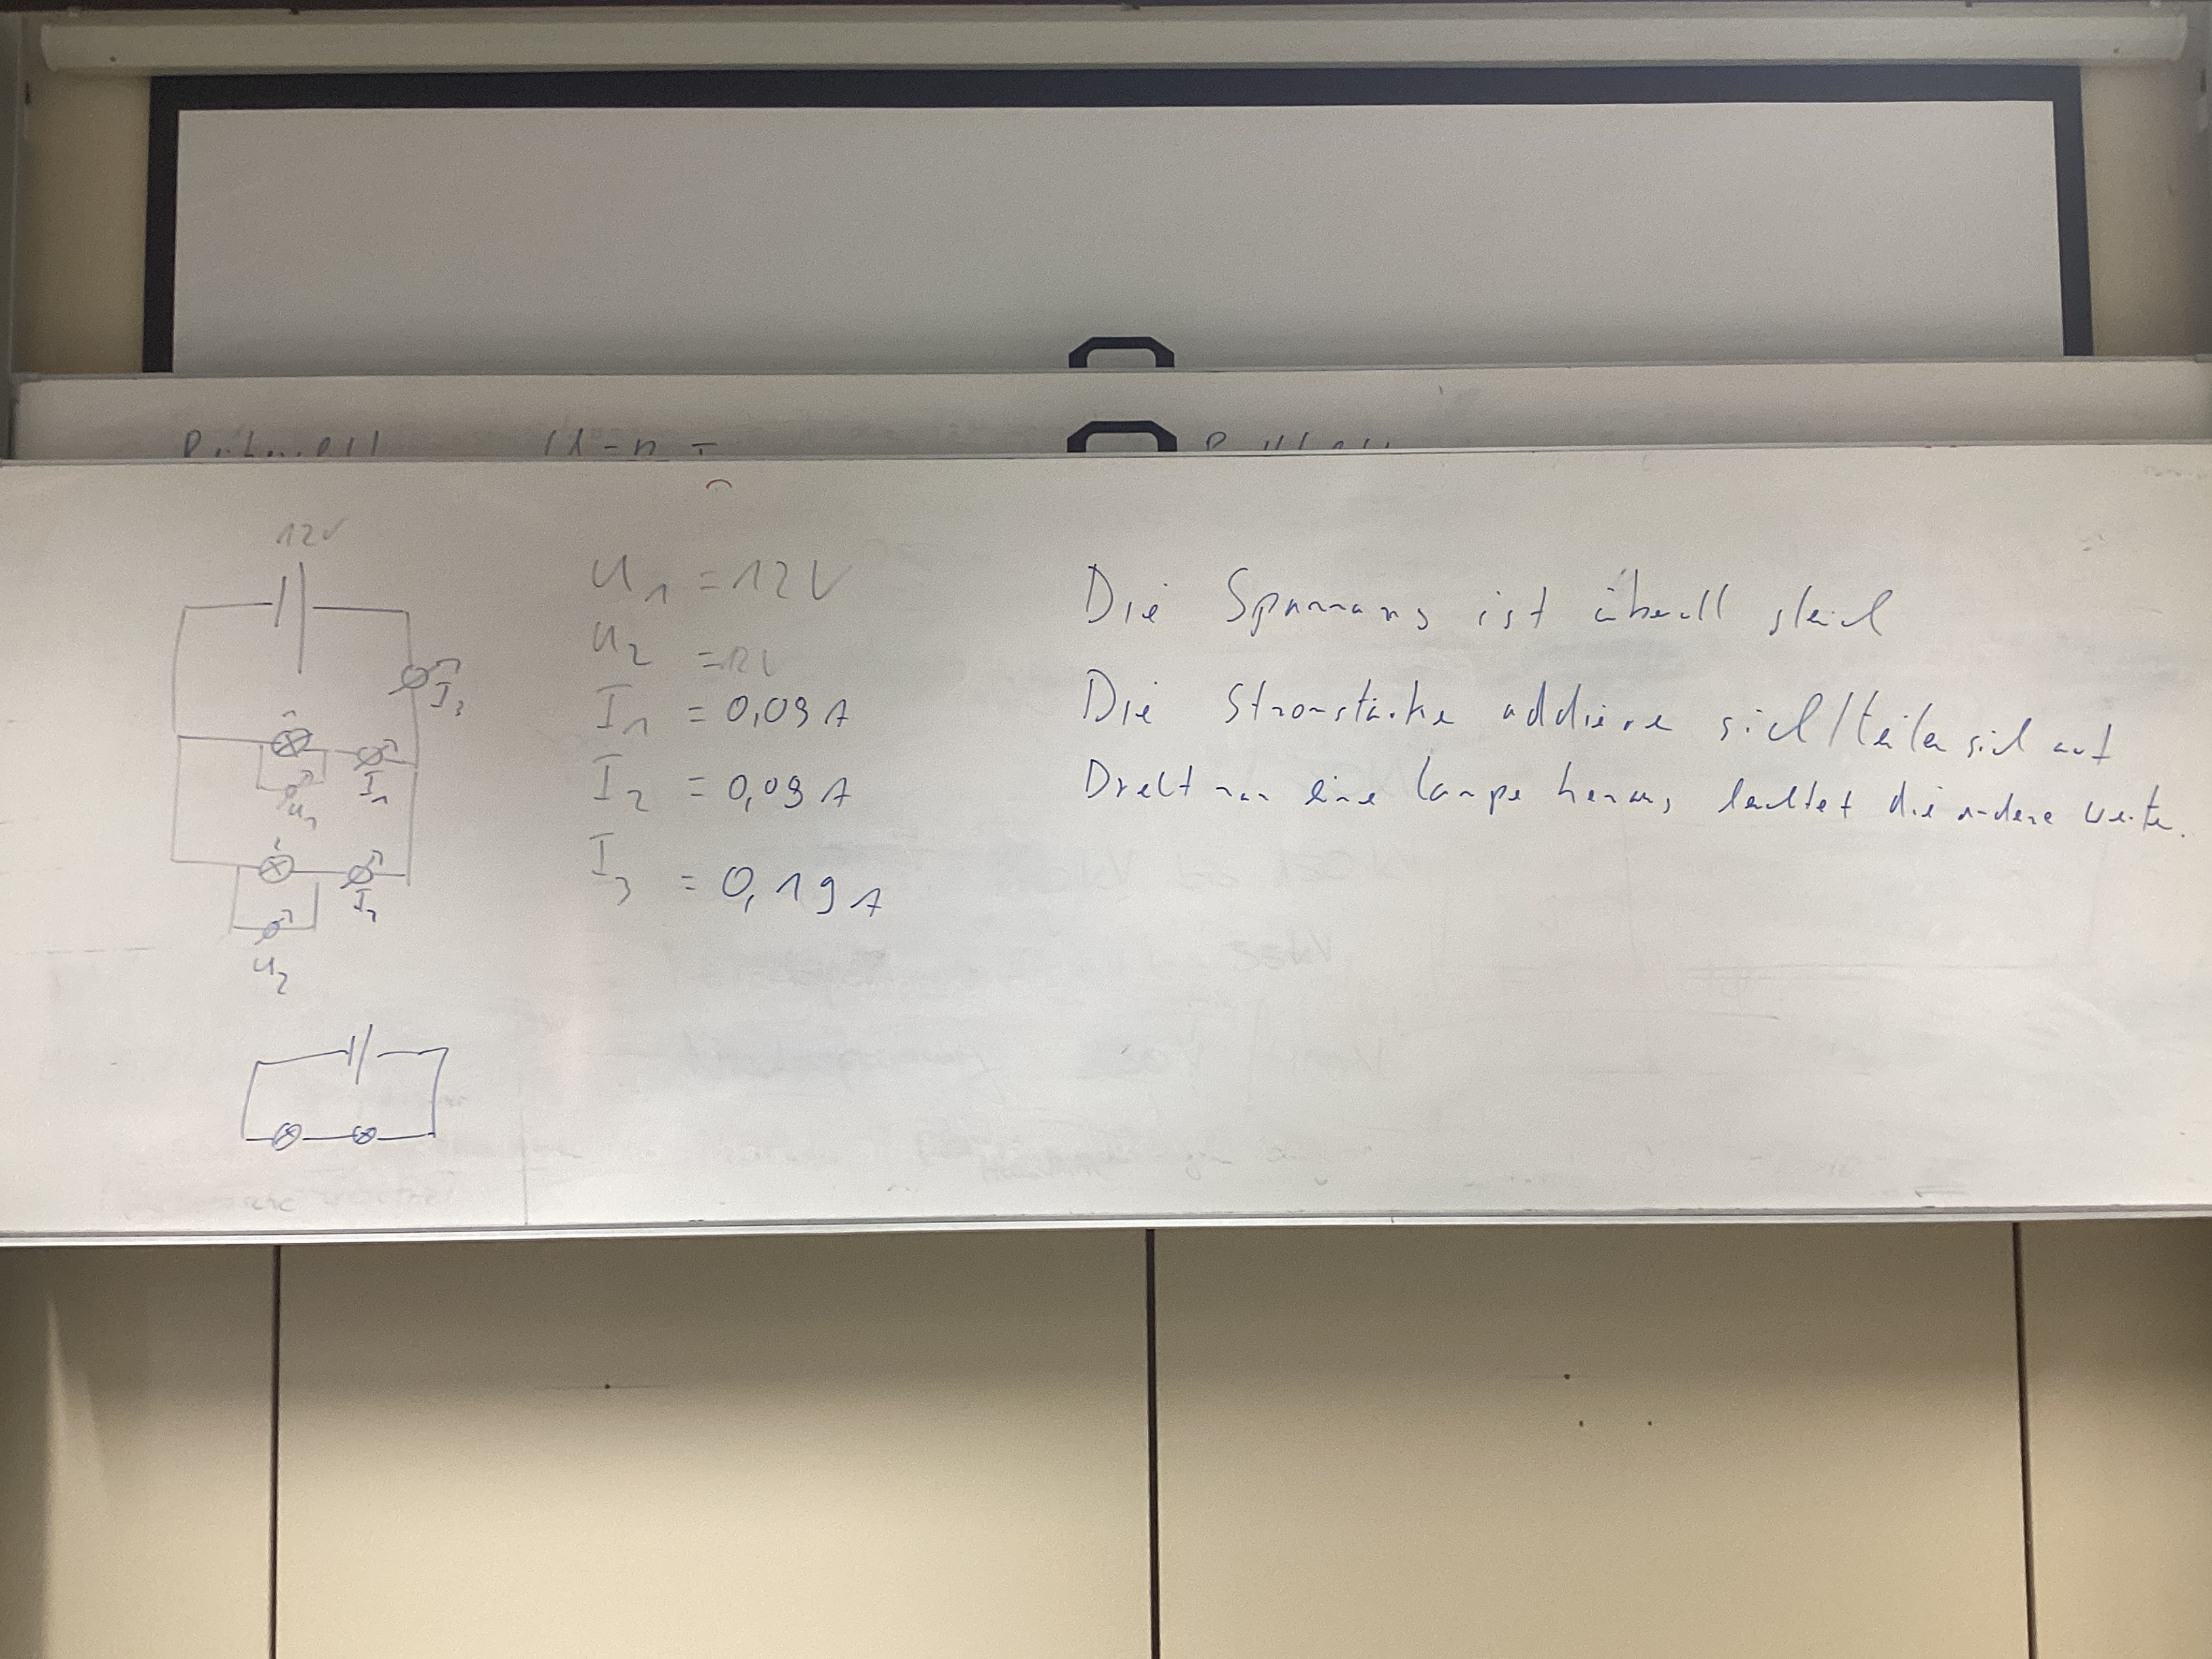 12V
I3
I1
U1
I2
U2
U1 = 12V
U2 = 12V
I1 = 0,09A
I2 = 0,09A
I3 = 0,19A
Die Spannung ist überall gleich
Die Stromstärke addiere sich/teilen sich auf
Dreht man eine Lampe heraus, leuchtet die andere weiter.